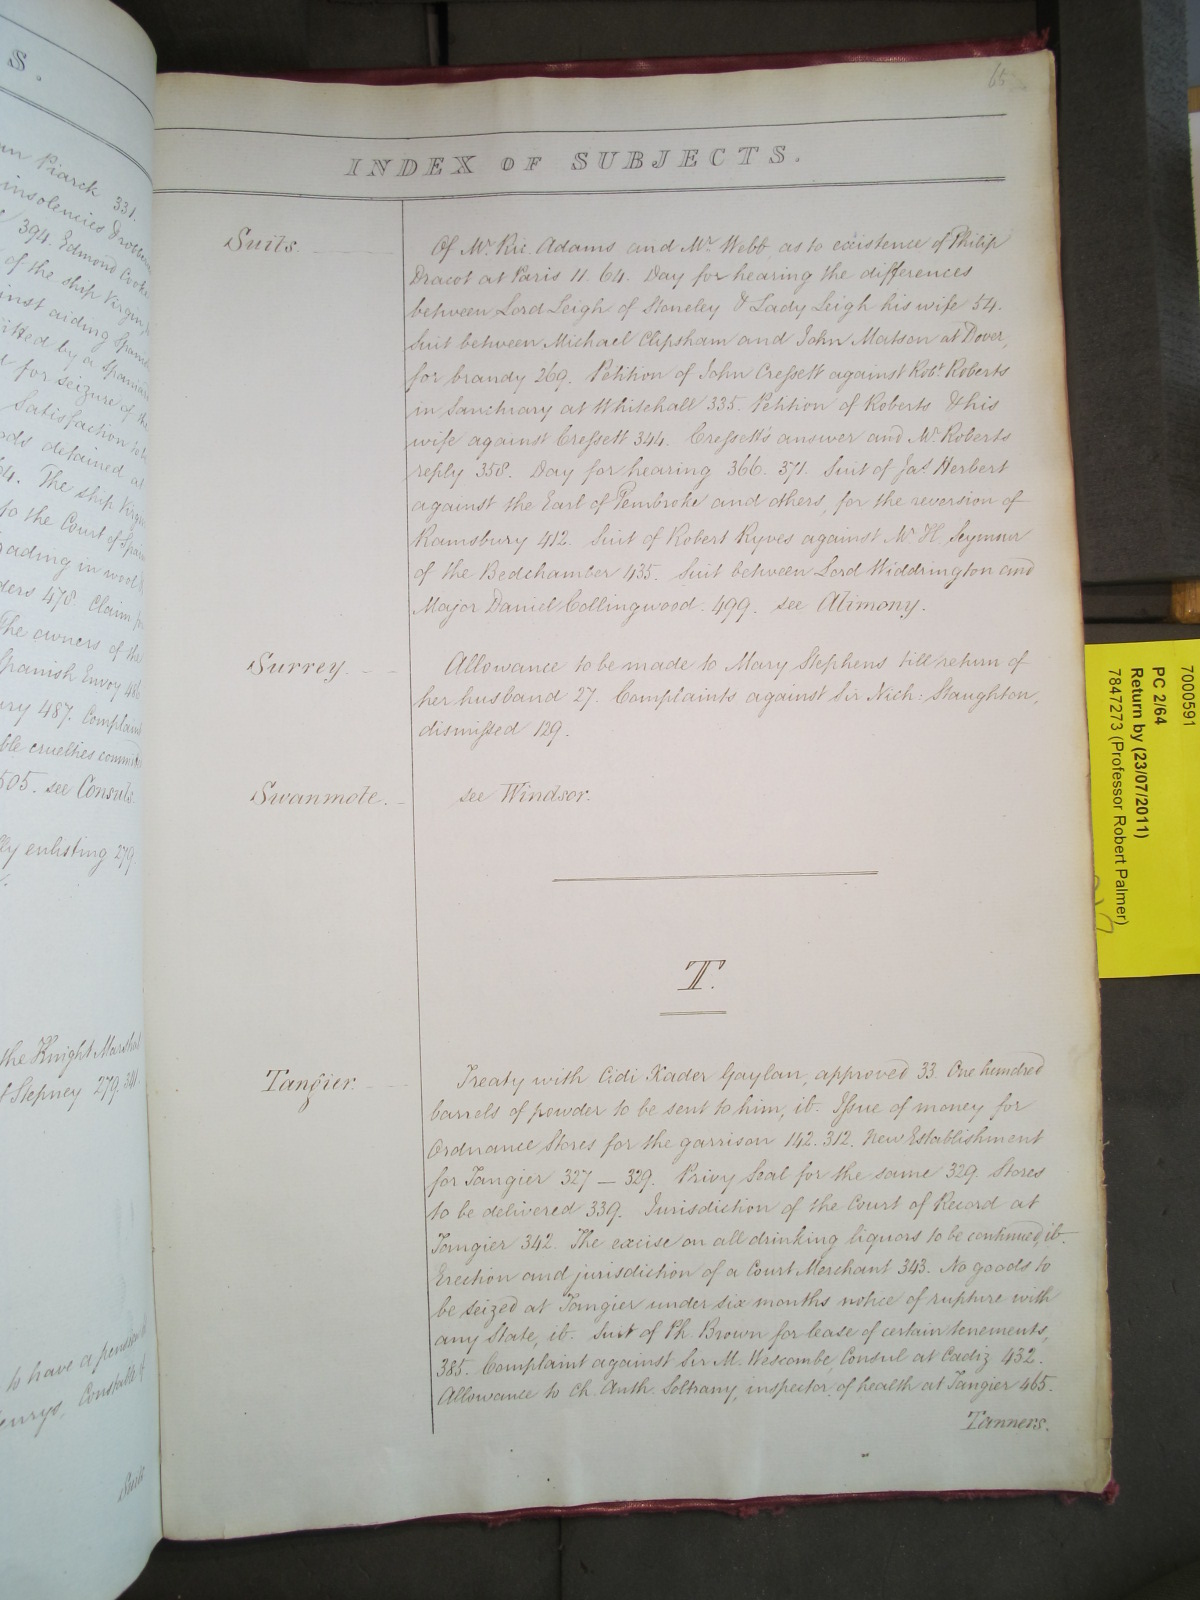 S.
Piarck 331.
insolencies
394. Edmond Cooke
of the ship Virgin
aiding
by a Spaniard
for seizure of the
Satisfaction
detained at
The ship Virgin
to the Court of Spain
lading in wool
478. Claim
The owners of the
Spanish Envoy
487. Complaint
cruelties
505. see Consuls.
enlisting 279.
the Knight Marshal
Stepney 279. 311.
to have a pension
Suits
65
INDEX OF SUBJECTS.
Suits
Of Mr. Ric. Adams and Mr. Webb, as to existence of Philip
Dracot at Paris 11. 64. Day for hearing the differences
between Lord Leigh of Stoneley & Lady Leigh his wife 54.
Suit between Michael Clipsham and John Matson at Dover,
for brandy 269. Petition of John Cressett against Robt. Roberts
in Sanctuary at Whitehall 335. Petition of Roberts & his
wife against Cressett 344. Cressett's answer and Mr. Roberts
reply 358. Day for hearing 366. 371. Suit of Jas. Herbert
against the Earl of Pembroke and others, for the reversion of
Ramsbury 412. Suit of Robert Ryves against Mr. H. Seymour
of the Bedchamber 435. Suit between Lord Widdrington and
Major Daniel Collingwood. 499. see Alimony.
Surrey
Allowance to be made to Mary Stephens till return of
her husband 27. Complaints against Sir Nich: Staughton,
dismissed 129.
Swanmote.
see Windsor.
T.
Tangier.
Treaty with Cidi Kader Gaylan, approved 33. One hundred
barrels of powder to be sent to him, ib. Issue of money for
Ordnance Stores for the garrison 142. 312. New Establishment
for Tangier 327 — 329. Privy Seal for the same 329. Stores
to be delivered 339. Jurisdiction of the Court of Record at
Tangier 342. The excise on all drinking liquors to be continued, ib.
Erection and jurisdiction of a Court Merchant 343. No goods to
be seized at Tangier under six months notice of rupture with
any State, ib. Suit of Ph. Brown for lease of certain tenements,
385. Complaint against Sir M. Wescombe, Consul at Cadiz 432.
Allowance to Ch. Anth. Soltrany, inspector of health at Tangier 465.
Tanners.
7000591
PC 2/64
Return by (23/07/2011)
7847273 (Professor Robert Palmer)